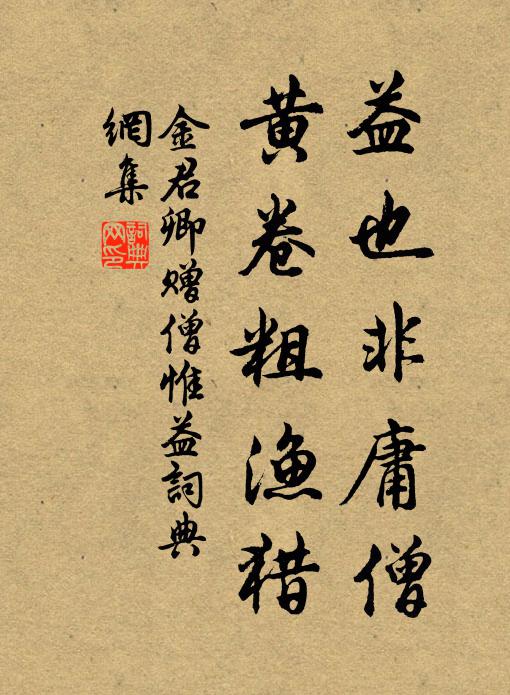 益也非庸僧
黄卷粗漁猎
金君卿赠僧惟益詞典
網集
詞典
网印